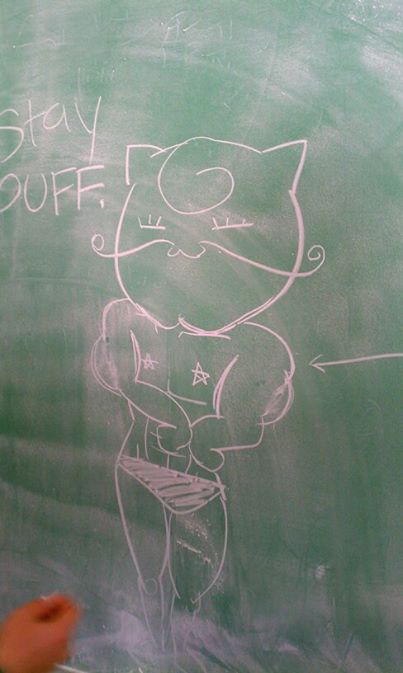 Stay
BUFF.